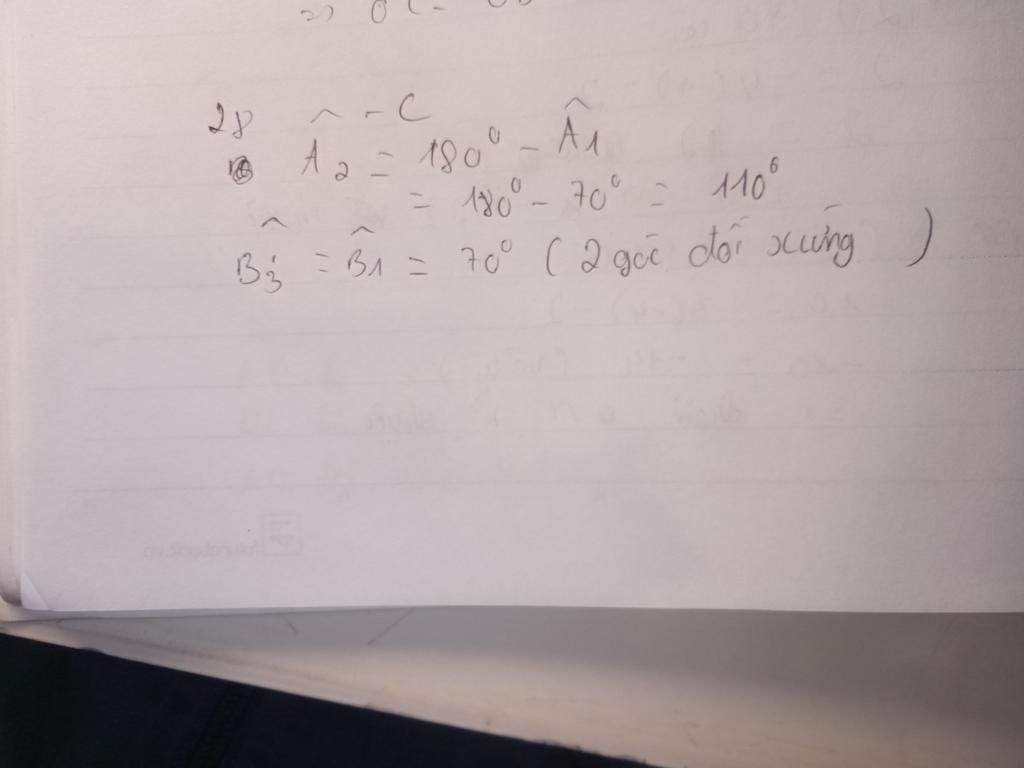 28 - C
Â2 = 180⁰ - Â1
= 180⁰ - 70⁰ = 110⁰
B̂3 = B̂1 = 70⁰ ( 2 góc đối xứng )